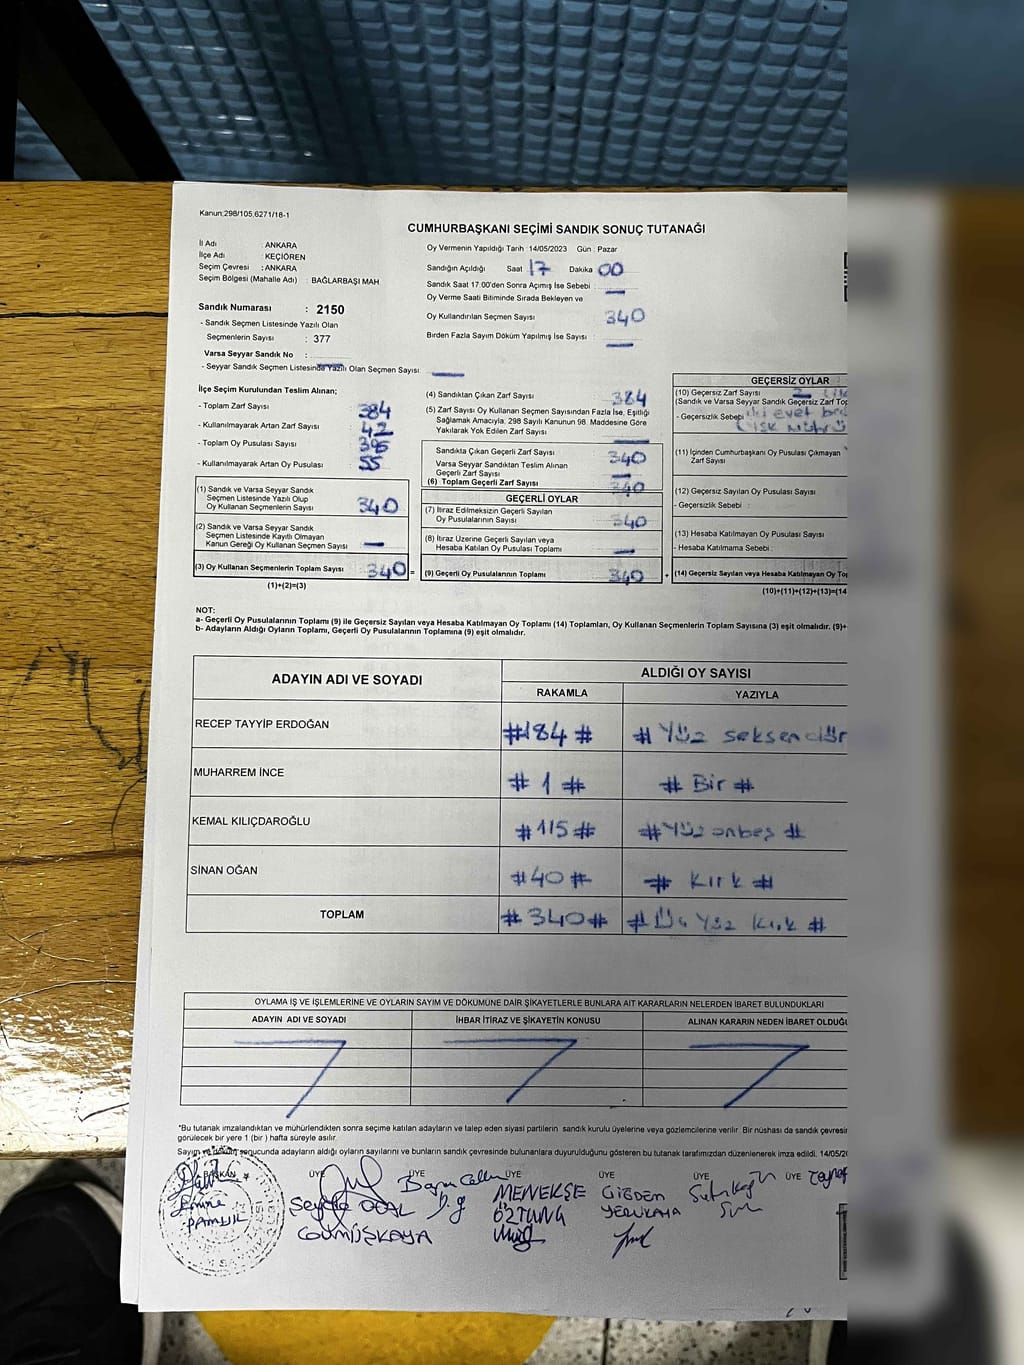 Kanun:298/105,6271/18-1
CUMHURBAŞKANI SEÇİMİ SANDIK SONUÇ TUTANAĞI
İl Adı : ANKARA
İlçe Adı : KEÇİÖREN
Seçim Çevresi : ANKARA
Seçim Bölgesi (Mahalle Adı) : BAĞLARBAŞI MAH
Sandık Numarası : 2150
- Sandık Seçmen Listesinde Yazılı Olan
Seçmenlerin Sayısı : 377
Varsa Seyyar Sandık No :
- Seyyar Sandık Seçmen Listesinde Yazılı Olan Seçmen Sayısı
Oy Vermenin Yapıldığı Tarih : 14/05/2023 Gün : Pazar
Sandığın Açıldığı Saat 17 Dakika 00
Sandık Saat 17.00'den Sonra Açımış İse Sebebi :
Oy Verme Saati Bitiminde Sırada Bekleyen ve
Oy Kullandırılan Seçmen Sayısı 340
Birden Fazla Sayım Döküm Yapılmış İse Sayısı :
İlçe Seçim Kurulundan Teslim Alınan;
- Toplam Zarf Sayısı 384
- Kullanılmayarak Artan Zarf Sayısı 42
- Toplam Oy Pusulası Sayısı
- Kullanılmayarak Artan Oy Pusulası 55
(1) Sandık ve Varsa Seyyar Sandık
Seçmen Listesinde Yazılı Olup
Oy Kullanan Seçmenlerin Sayısı 340
(2) Sandık ve Varsa Seyyar Sandık
Seçmen Listesinde Kayıtlı Olmayan
Kanun Gereği Oy Kullanan Seçmen Sayısı
(3) Oy Kullanan Seçmenlerin Toplam Sayısı 340 =
(1)+(2)=(3)
(4) Sandıktan Çıkan Zarf Sayısı 384
(5) Zarf Sayısı Oy Kullanan Seçmen Sayısından Fazla İse, Eşitliği
Sağlamak Amacıyla, 298 Sayılı Kanunun 98. Maddesine Göre
Yakılarak Yok Edilen Zarf Sayısı
Sandıkta Çıkan Geçerli Zarf Sayısı 340
Varsa Seyyar Sandıktan Teslim Alınan
Geçerli Zarf Sayısı
(6) Toplam Geçerli Zarf Sayısı 340
GEÇERLİ OYLAR
(7) İtiraz Edilmeksizin Geçerli Sayılan
Oy Pusulalarının Sayısı 340
(8) İtiraz Üzerine Geçerli Sayılan veya
Hesaba Katılan Oy Pusulası Toplamı
(9) Geçerli Oy Pusulalarının Toplamı 340 +
GEÇERSİZ OYLAR
(10) Geçersiz Zarf Sayısı
(Sandık ve Varsa Seyyar Sandık Geçersiz Zarf Top
- Geçersizlik Sebebi evet
(11) İçinden Cumhurbaşkanı Oy Pusulası Çıkmayan
Zarf Sayısı
(12) Geçersiz Sayılan Oy Pusulası Sayısı
- Geçersizlik Sebebi :
(13) Hesaba Katılmayan Oy Pusulası Sayısı
- Hesaba Katılmama Sebebi :
(14) Geçersiz Sayılan veya Hesaba Katılmayan Oy Top
(10)+(11)+(12)+(13)=(14
NOT:
a- Geçerli Oy Pusulalarının Toplamı (9) ile Geçersiz Sayılan veya Hesaba Katılmayan Oy Toplamı (14) Toplamları, Oy Kullanan Seçmenlerin Toplam Sayısına (3) eşit olmalıdır. (9)+
b- Adayların Aldığı Oyların Toplamı, Geçerli Oy Pusulalarının Toplamına (9) eşit olmalıdır.
ADAYIN ADI VE SOYADI ALDIĞI OY SAYISI
RAKAMLA YAZIYLA
RECEP TAYYİP ERDOĞAN #184# # Yüz seksen dör
MUHARREM İNCE # 1 # # Bir #
KEMAL KILIÇDAROĞLU #115# #Yüz onbeş #
SİNAN OĞAN #40# # Kırk #
TOPLAM #340# # Üç Yüz Kırk #
OYLAMA İŞ VE İŞLEMLERİNE VE OYLARIN SAYIM VE DÖKÜMÜNE DAİR ŞİKAYETLERLE BUNLARA AİT KARARLARIN NELERDEN İBARET BULUNDUKLARI
ADAYIN ADI VE SOYADI İHBAR İTİRAZ VE ŞİKAYETİN KONUSU ALINAN KARARIN NEDEN İBARET OLDUĞU
"Bu tutanak imzalandıktan ve mühürlendikten sonra seçime katılan adayların ve talep eden siyasi partilerin sandık kurulu üyelerine veya gözlemcilerine verilir. Bir nüshası da sandık çevresin
görülecek bir yere 1 (bir ) hafta süreyle asılır.
Sayım ve döküm sonucunda adayların aldığı oyların sayılarını ve bunların sandık çevresinde bulunanlara duyurulduğunu gösteren bu tutanak tarafımızdan düzenlenerek imza edildi. 14/05/2
BAŞKAN ÜYE ÜYE ÜYE ÜYE ÜYE ÜYE
Emine
PAMUK
GÜMÜŞKAYA
MENEKŞE
ÖZTUNA
ÇİĞDEM
YERLİKAYA
Zeynep